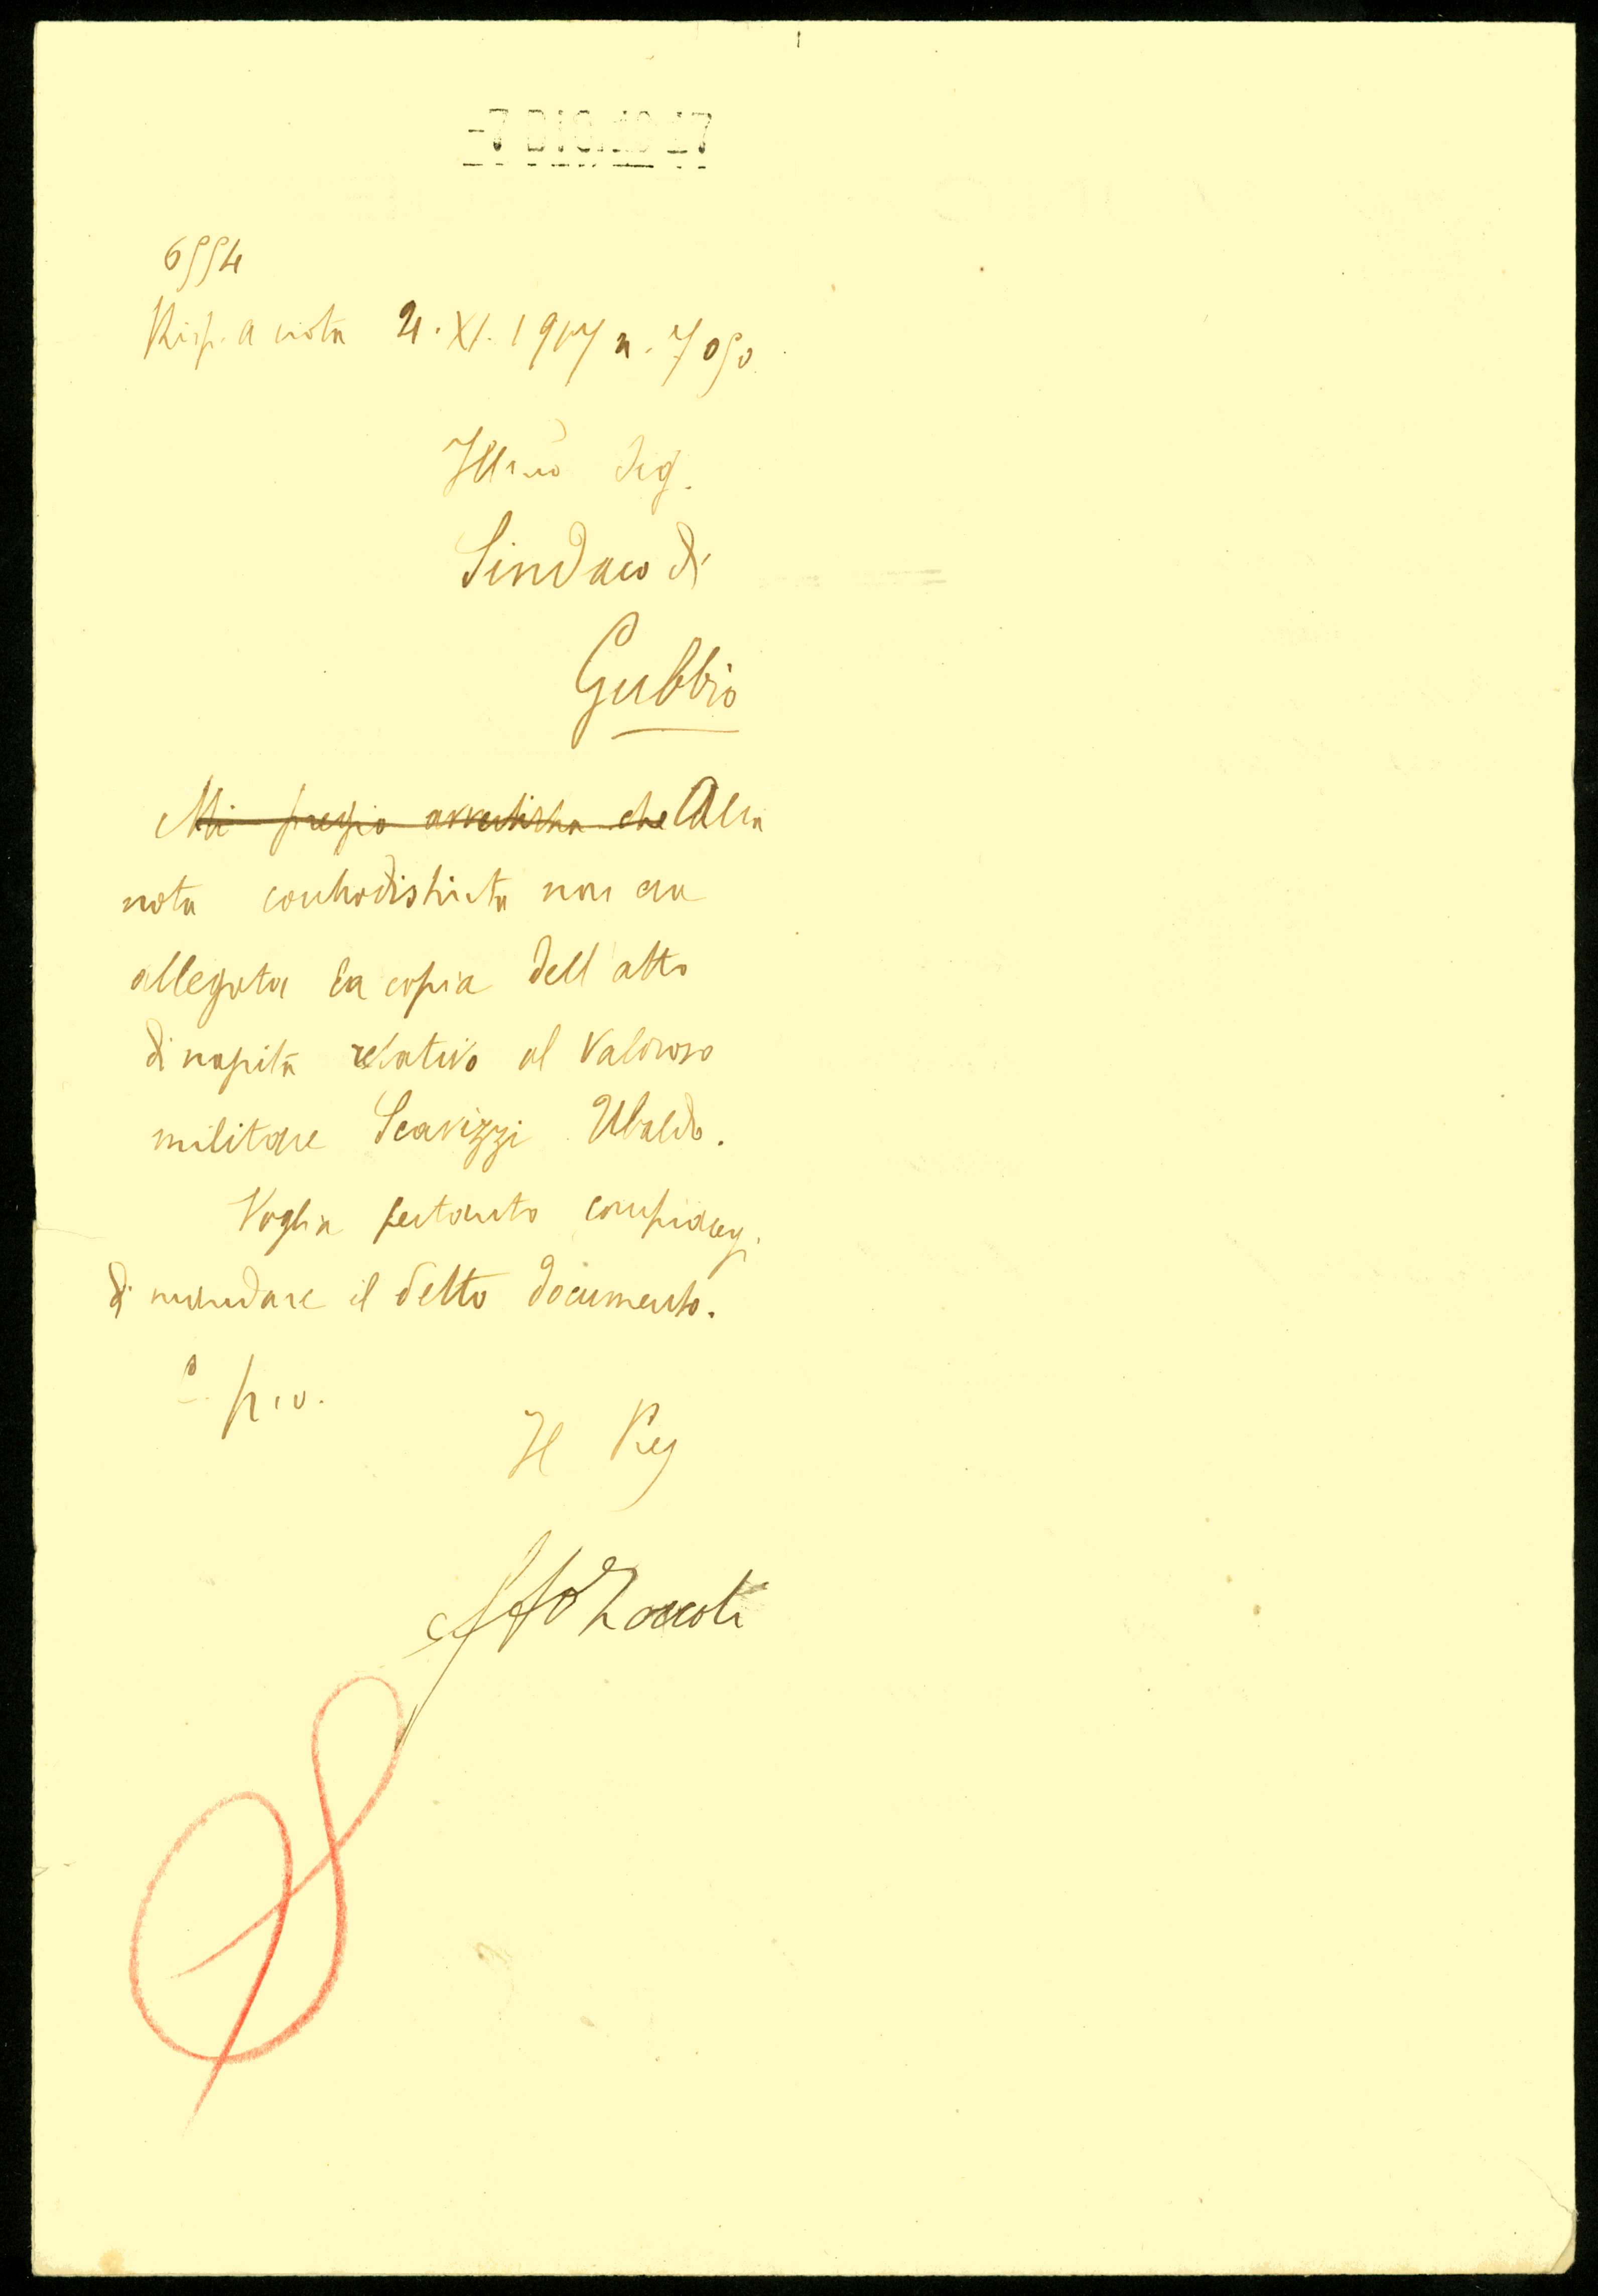 -7 DIC. 1917
6554
Risp. a nota 21. XI. 1917 n. 7050
Illmo Sig.
Sindaco di
Gubbio
Mi pregio avvertirla che Alla
nota controdistinta non era
allegata la copia dell'atto
di nascita relativo al valoroso
militare Scavizzi Ubaldo.
Voglia pertanto compiacersi
di mandare il detto documento.
Il Reg